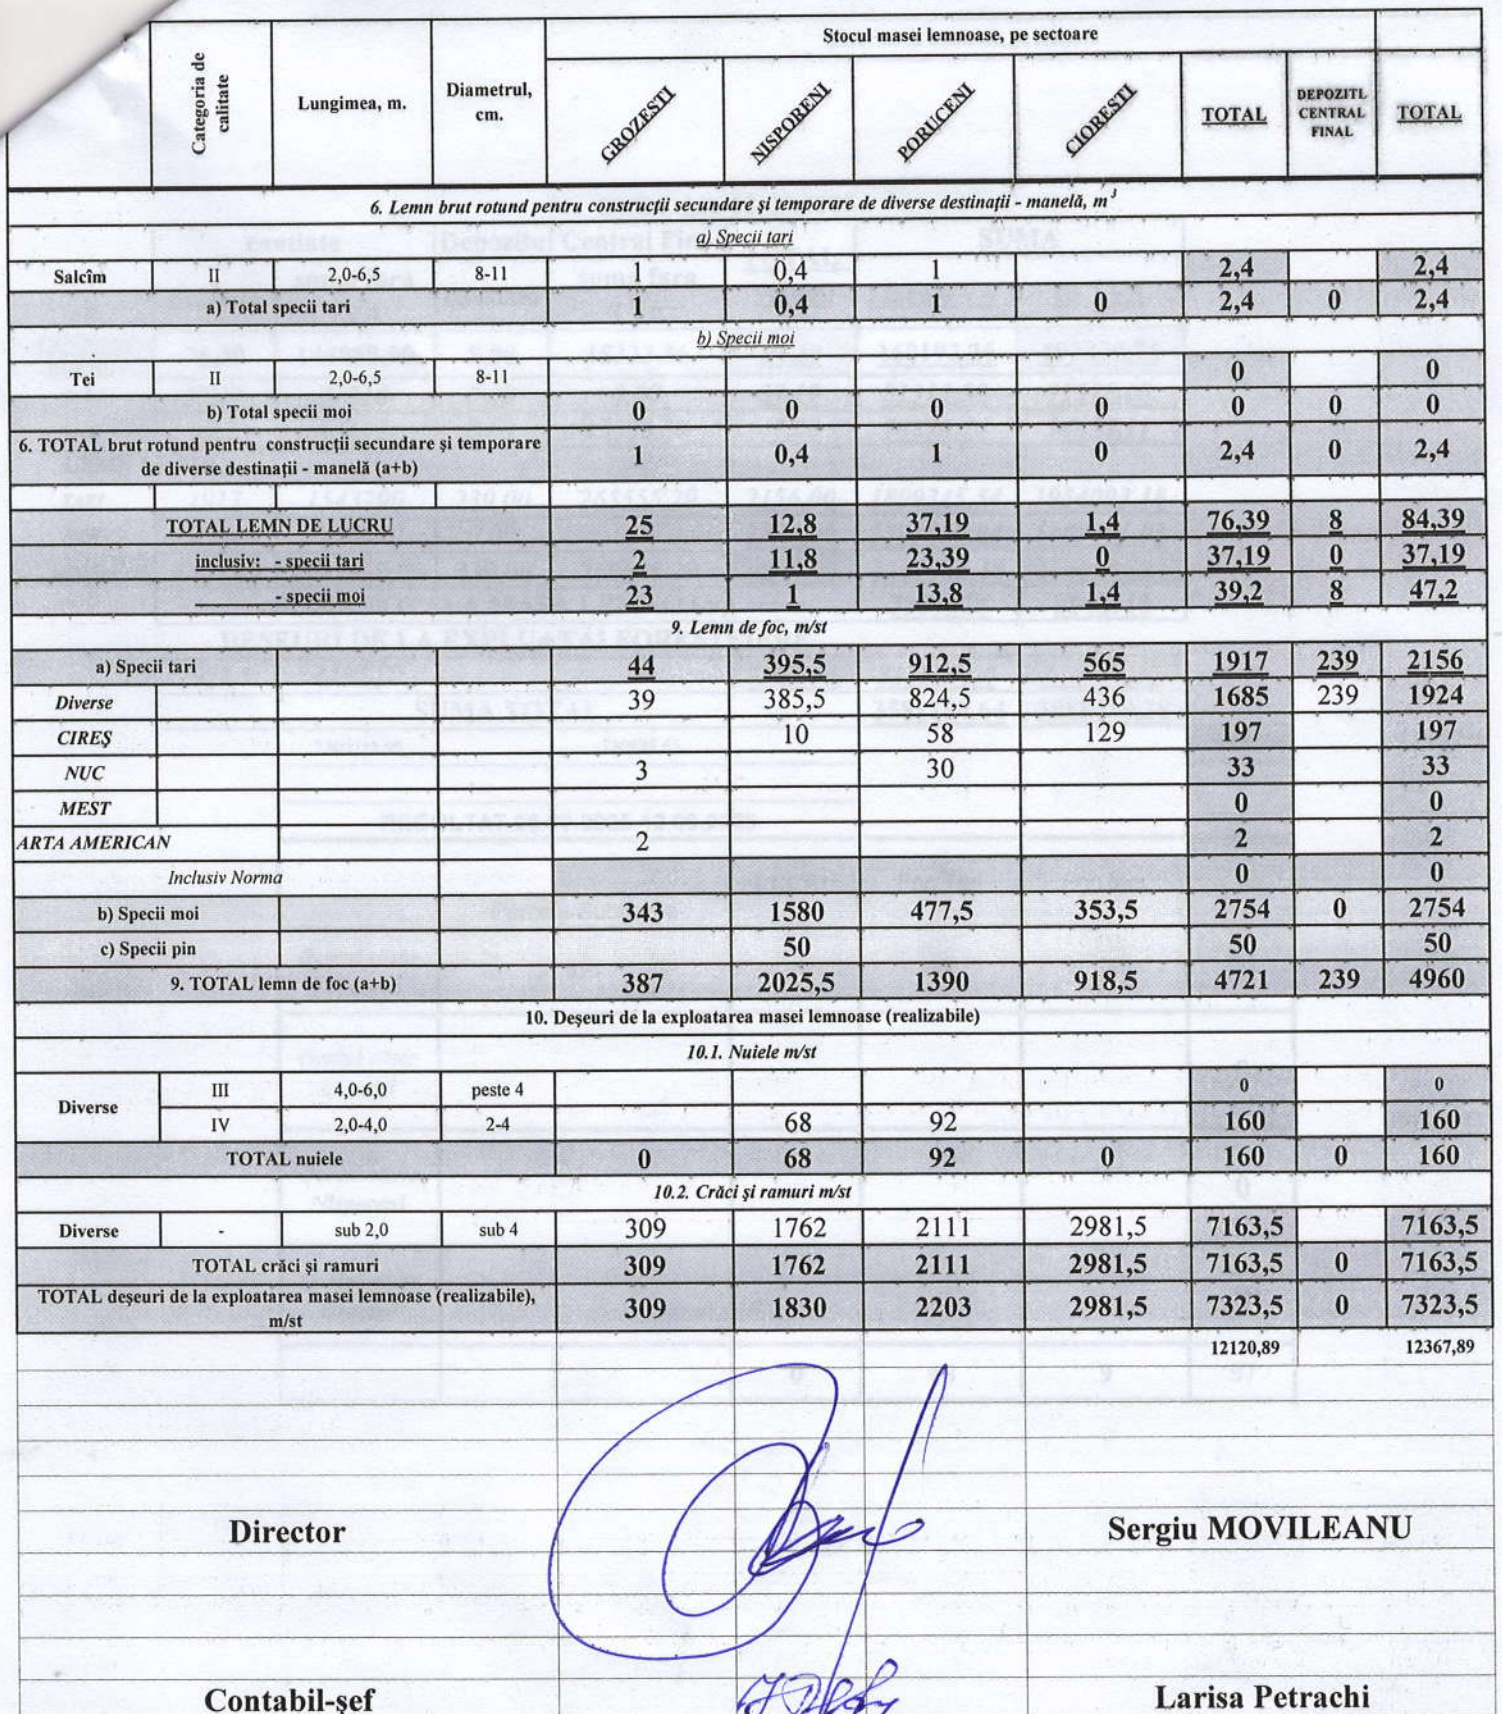 Stocul masei lemnoase, pe sectoare
Categoria de calitate Lungimea, m. Diametrul, cm. GROZESTI NISPORENI PORUCENI CIORESTI TOTAL DEPOZITL CENTRAL FINAL TOTAL
6. Lemn brut rotund pentru construcţii secundare şi temporare de diverse destinaţii - manelă, m³
a) Specii tari
Salcîm II 2,0-6,5 8-11 1 0,4 1 2,4 2,4
a) Total specii tari 1 0,4 1 0 2,4 0 2,4
b) Specii moi
Tei II 2,0-6,5 8-11 0 0
b) Total specii moi 0 0 0 0 0 0 0
6. TOTAL brut rotund pentru construcţii secundare şi temporare
de diverse destinaţii - manelă (a+b) 1 0,4 1 0 2,4 0 2,4
TOTAL LEMN DE LUCRU 25 12,8 37,19 1,4 76,39 8 84,39
inclusiv: - specii tari 2 11,8 23,39 0 37,19 0 37,19
- specii moi 23 1 13,8 1,4 39,2 8 47,2
9. Lemn de foc, m/st
a) Specii tari 44 395,5 912,5 565 1917 239 2156
Diverse 39 385,5 824,5 436 1685 239 1924
CIREŞ 10 58 129 197 197
NUC 3 30 33 33
MEST 0 0
ARTA AMERICAN 2 2 2
Inclusiv Norma 0 0
b) Specii moi 343 1580 477,5 353,5 2754 0 2754
c) Specii pin 50 50 50
9. TOTAL lemn de foc (a+b) 387 2025,5 1390 918,5 4721 239 4960
10. Deşeuri de la exploatarea masei lemnoase (realizabile)
10.1. Nuiele m/st
Diverse III 4,0-6,0 peste 4 0 0
IV 2,0-4,0 2-4 68 92 160 160
TOTAL nuiele 0 68 92 0 160 0 160
10.2. Crăci şi ramuri m/st
Diverse - sub 2,0 sub 4 309 1762 2111 2981,5 7163,5 7163,5
TOTAL crăci şi ramuri 309 1762 2111 2981,5 7163,5 0 7163,5
TOTAL deşeuri de la exploatarea masei lemnoase (realizabile),
m/st 309 1830 2203 2981,5 7323,5 0 7323,5
12120,89 12367,89
Director Sergiu MOVILEANU
Contabil-şef Larisa Petrachi